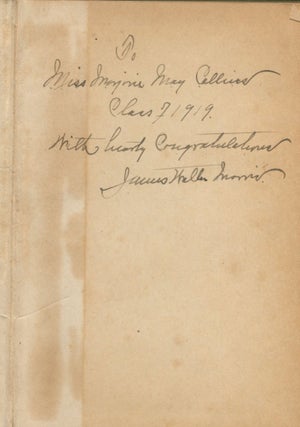 To
Miss Marjorie May Collins
Class of 1919.
With hearty Congratulations
James Walter Morris.